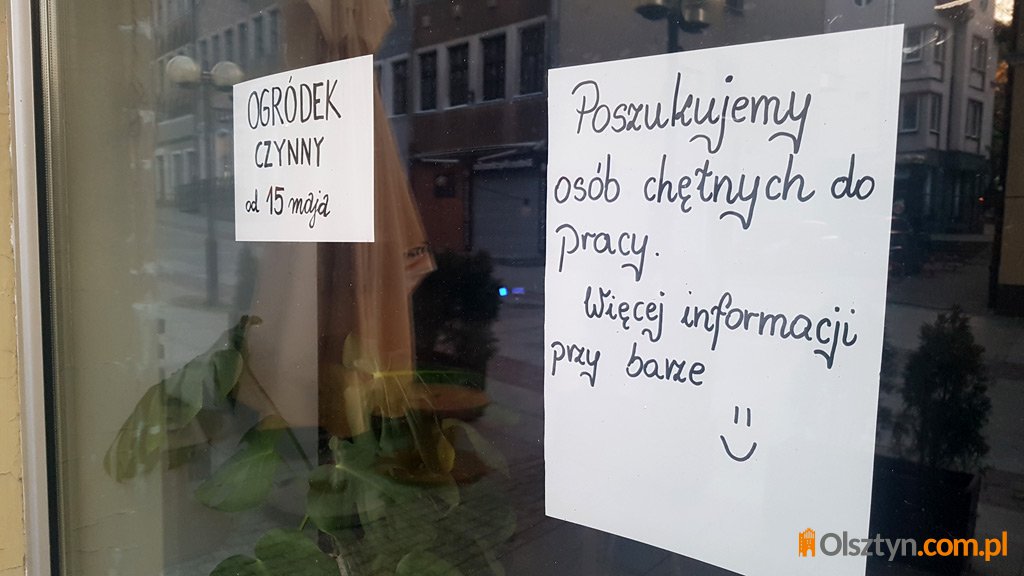 OGRÓDEK
CZYNNY
od 15 maja
Poszukujemy
osób chętnych do
pracy.
Więcej informacji
przy barze
Olsztyn.com.pl